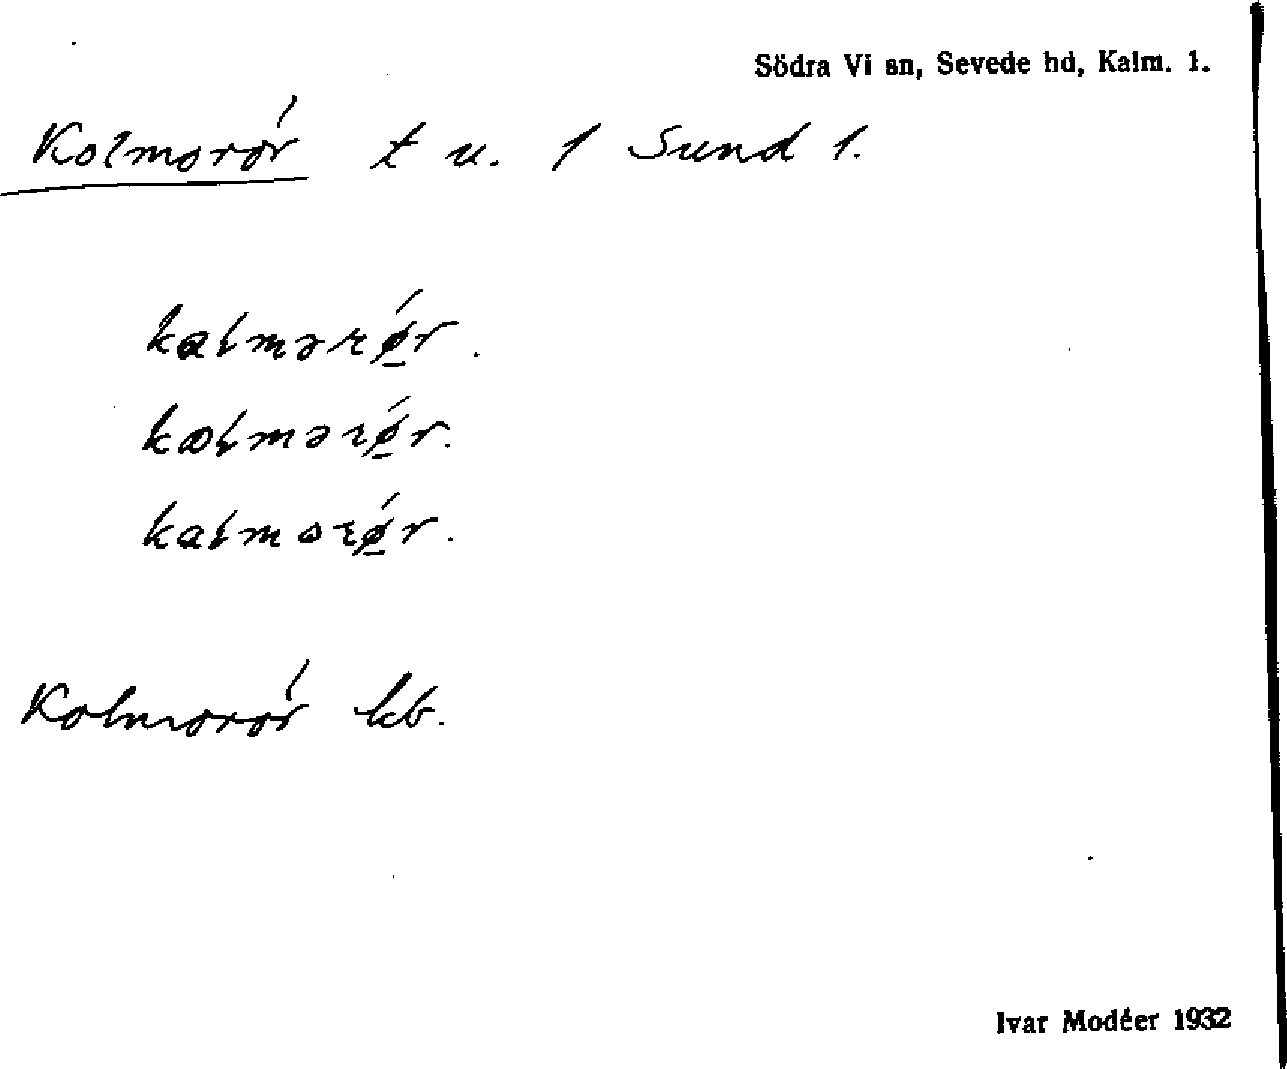 Södra Vi sn, Sevede hd, Kalm. l.
Kolmorör t u. 1 Sund 1.
kalmərǿ̱r.
kølmərǿ̱r.
kalmorǿ̱r.
Kolmorör kb.
Ivar Modéer 1932